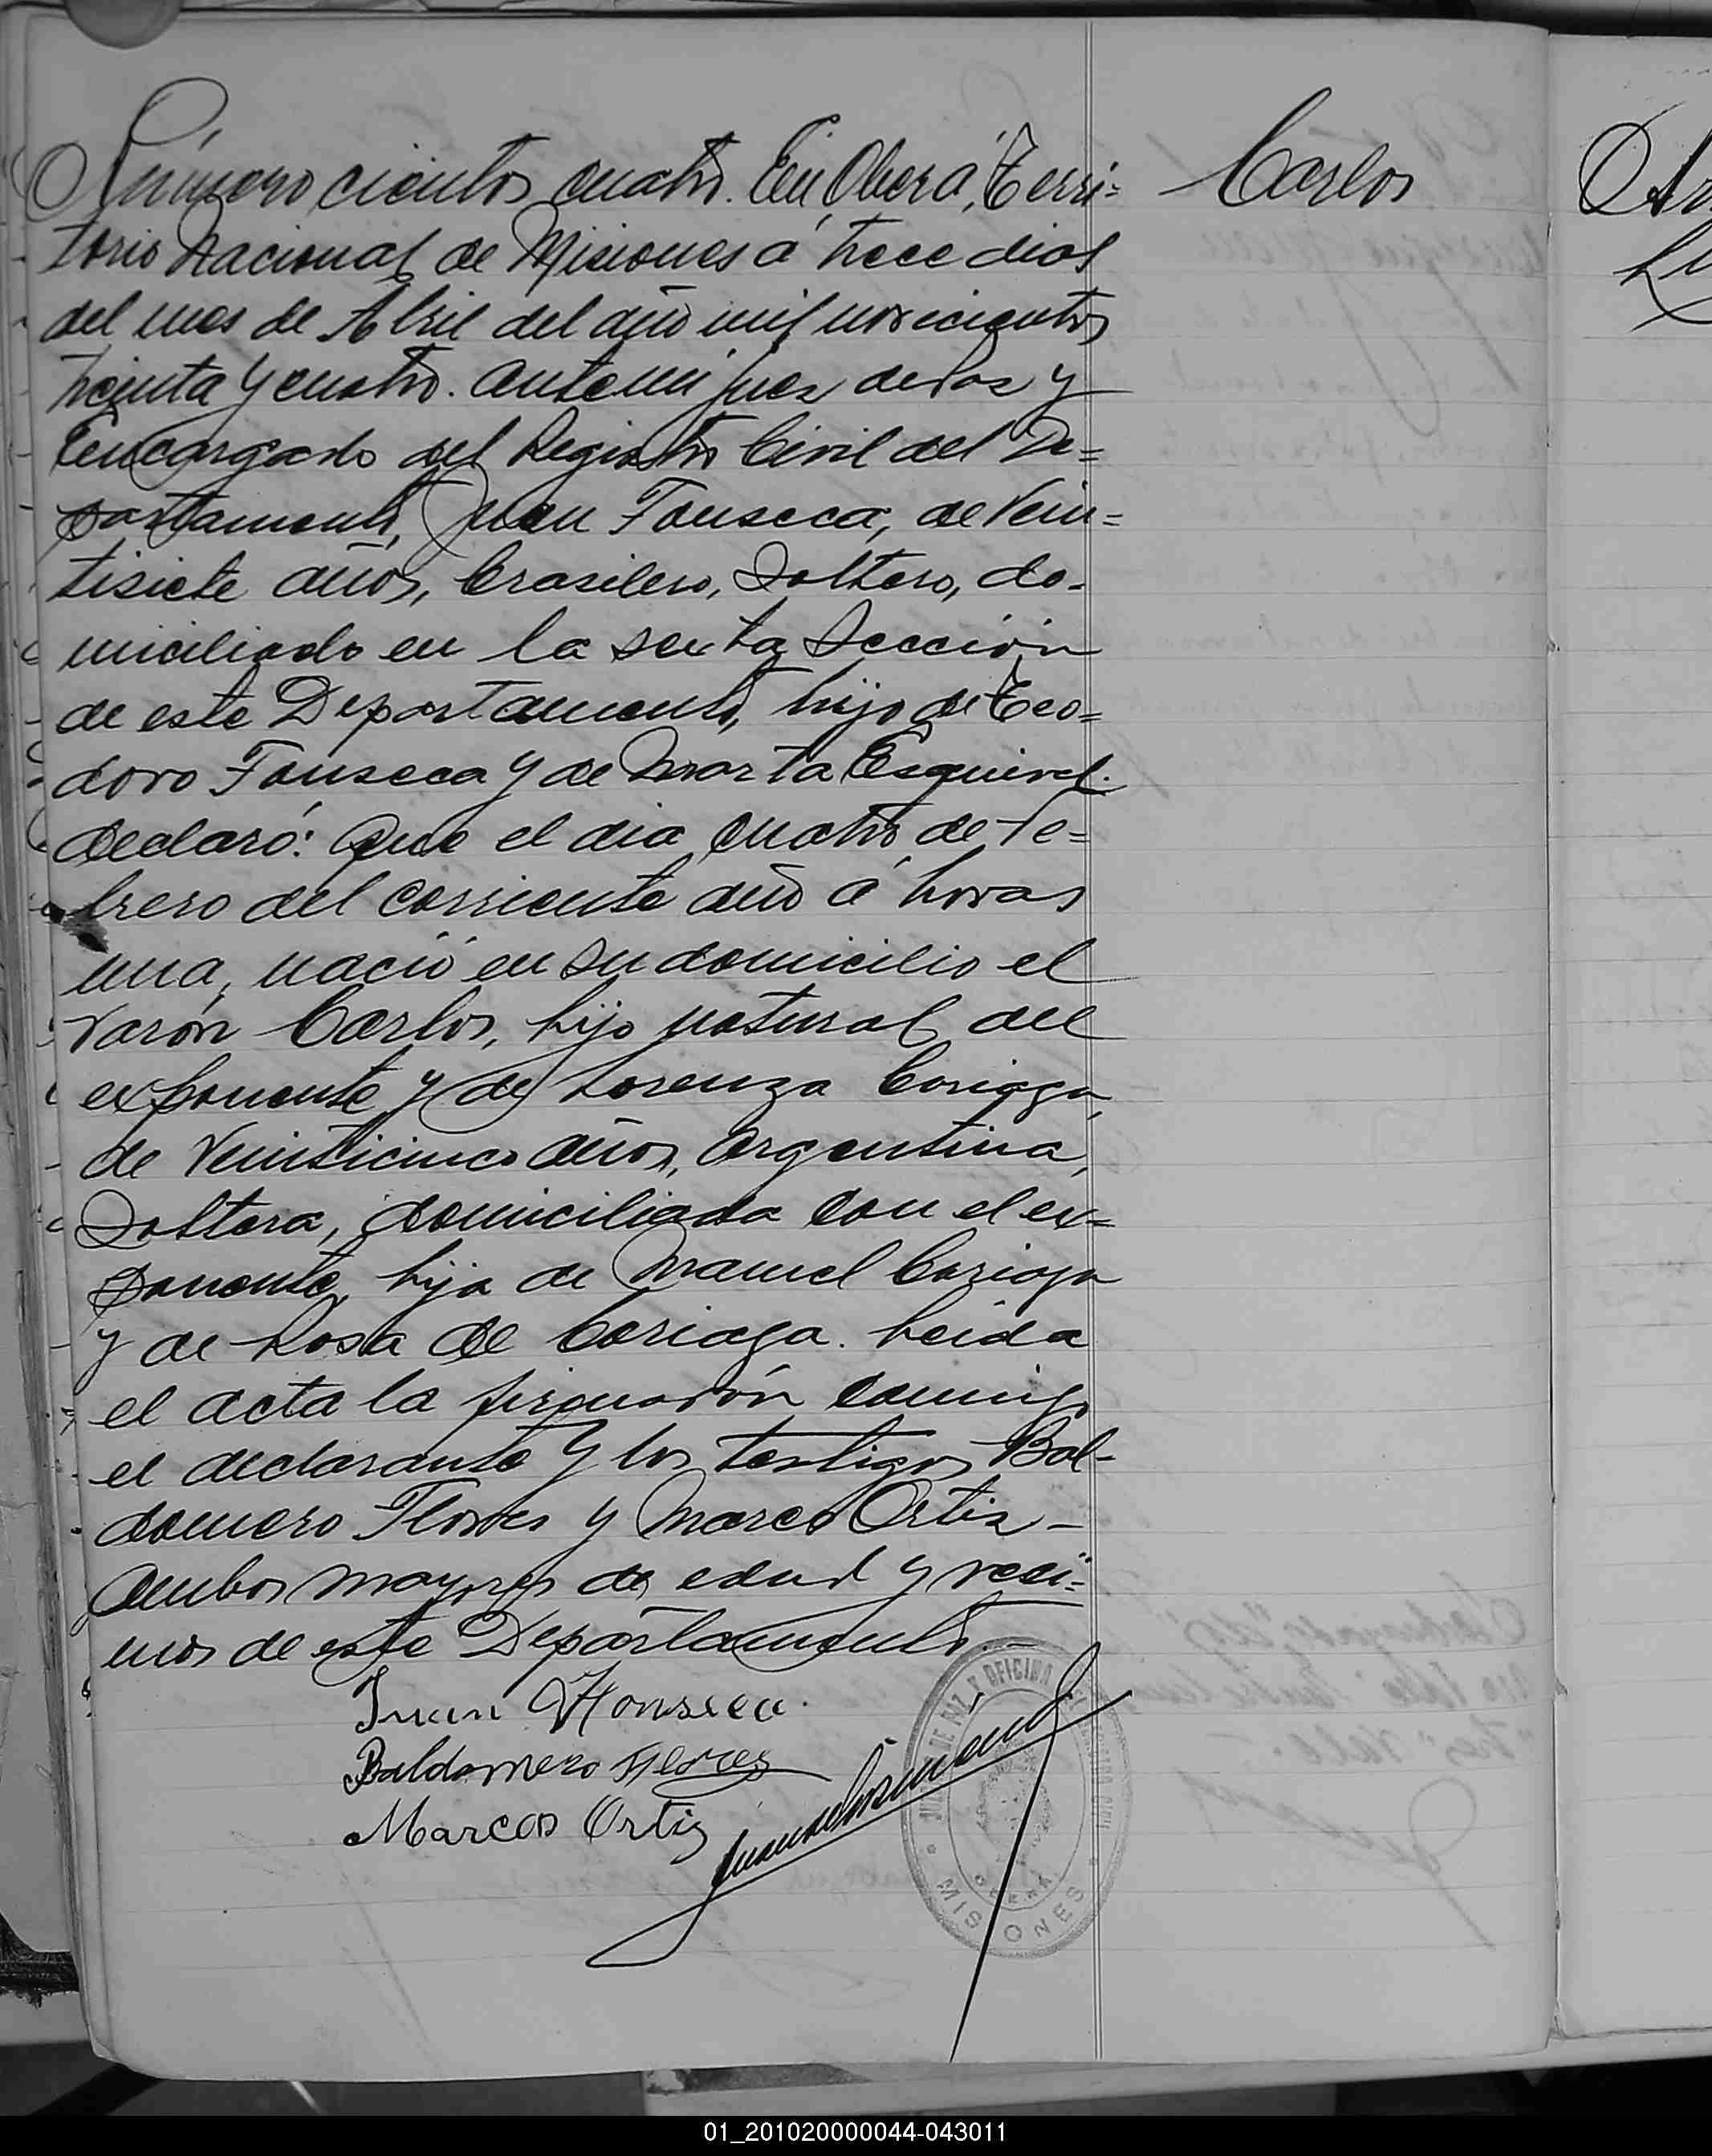 Número ciento cuatro. En Oberá, Terri=
torio Nacional de Misiones á trece dias
del mes de Abril del año mil novecientos
treinta y cuatro. ante mi juez de Paz y
Encargado del Registro Civil del De=
partamento, Juan Fonseca, de Vein=
tisiete años, brasilero, Soltero, do-
miciliado en la sexta Sección
de este Departamento, hijo de Teo=
doro Fonseca y de Marta Esquivel.
declaró: Que el dia cuatro de Fe=
brero del corriente año á horas
una, nació en su domicilio el
Varón Carlos, hijo natural del
exponente y de Lorenza Coriaga,
de Veinticinco años, argentina,
Soltera, domiciliada con el ex=
ponente, hija de Manuel Coriaga
y de Rosa de Coriaga. Leida
el acta la firmarón conmigo
el declarante y los testigos Bal-
domero Flores y Marco Ortiz -
ambos mayores de edad y veci=
nos de este Departamento. -
Juan Fonseca.
Baldomero Flores
Marcos Ortiz
JUZGADO DE PAZ Y OFICINA
CIVIL
OBERÁ
MISIONES
Carlos
01_201020000044-043011